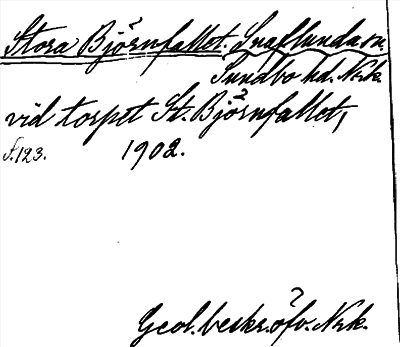 Stora Björnfallet. Snaflunda sn.
Sundbo hd. Nrk.
vid torpet St. Björnfallet,
s. 123. 1902.
Geol. beskr. öfv. Nrk.